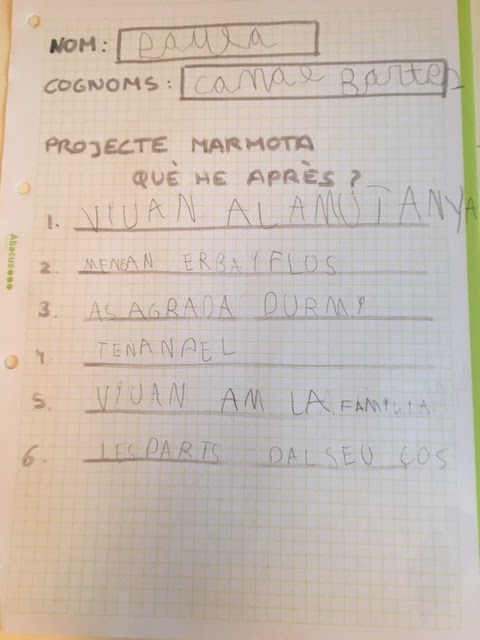 NOM: Paula
COGNOMS: Canal Bartes
PROJECTE MARMOTA
QUÈ HE APRÈS?
1. VIUAN ALAMUTANYA
2. MENGAN ERBAYFLOS
3. AS AGRADA DURMI
4. TENANPEL
5. VIUAN AM LA FAMILIA
6. LESPARTS DALSEU COS
Abacus